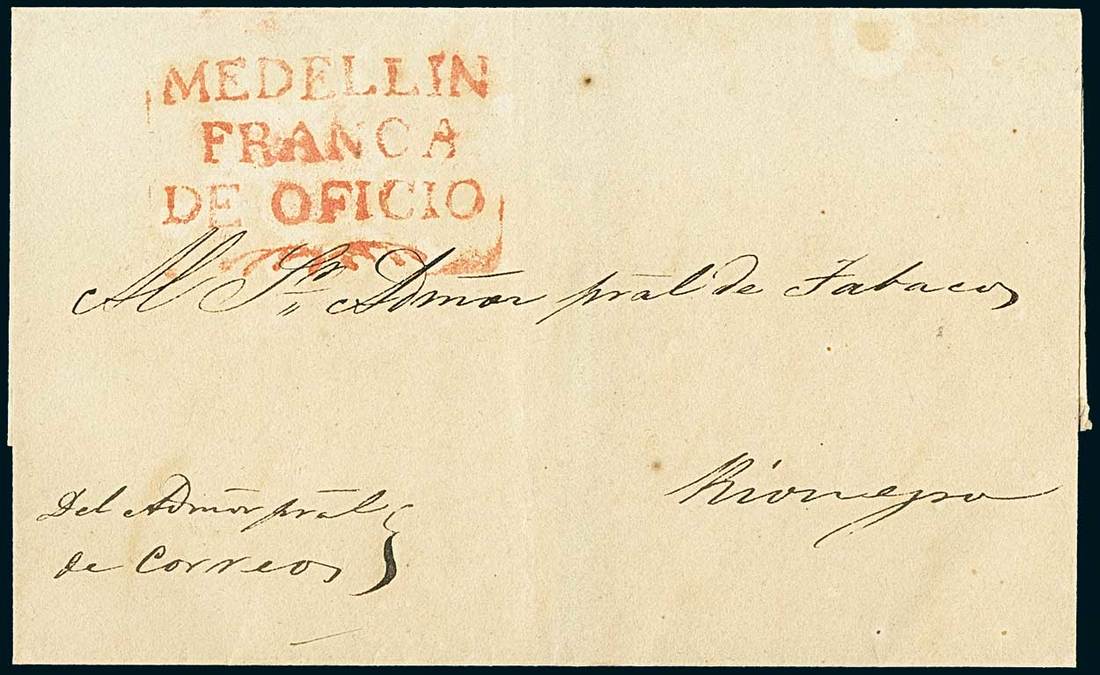 MEDELLIN
FRANCA
DE OFICIO
Al Sr. Admōr prāl de Tabacos
Rionegro
Del Admōr prāl
de Correos